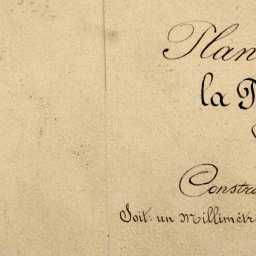 Plan
la
Constru
Soit: un Millimètr